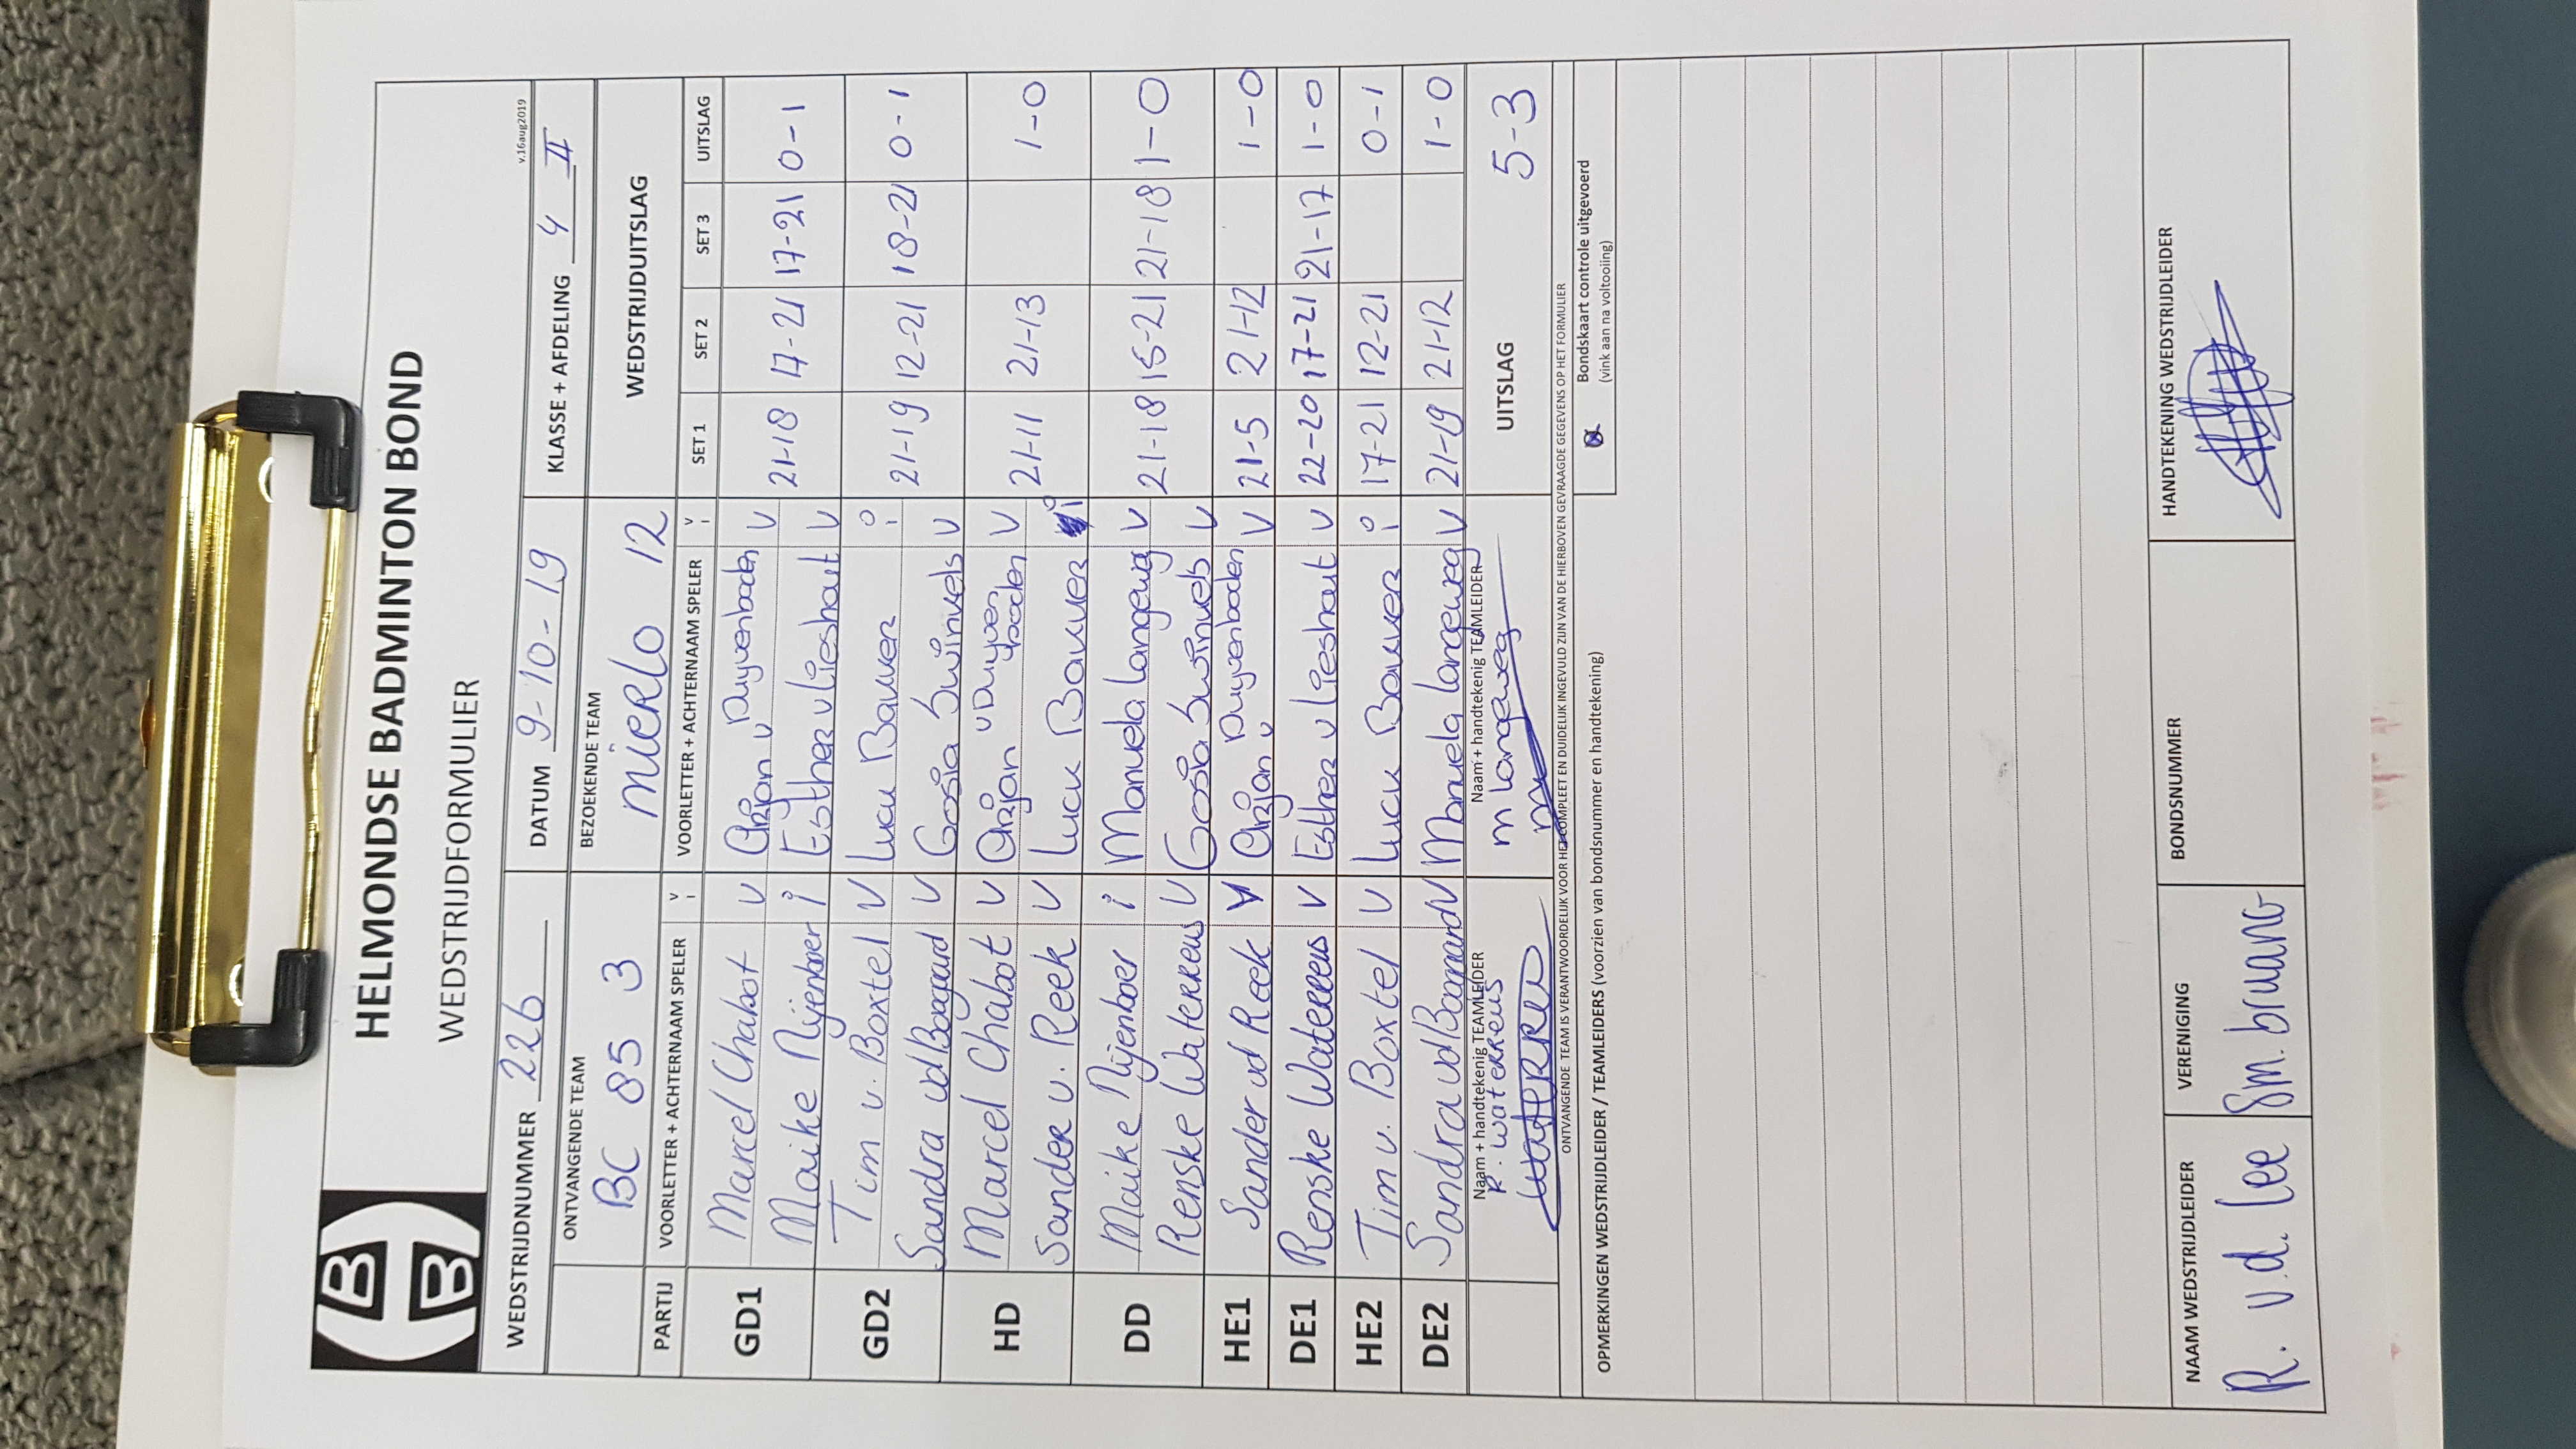 HELMONDSE BADMINTON BOND
WEDSTRIJDFORMULIER
v.16aug2019
WEDSTRIJDNUMMER 226 DATUM 9-10-19 KLASSE + AFDELING 4 II
ONTVANGENDE TEAM BEZOEKENDE TEAM WEDSTRIJDUITSLAG
BC 85 3 MIERLO 12
PARTIJ VOORLETTER + ACHTERNAAM SPELER V i VOORLETTER + ACHTERNAAM SPELER V i SET 1 SET 2 SET 3 UITSLAG
GD1 Marcel Chabot V Arjan v Duyvenboden V 21-18 17-21 17-21 0-1
Maike Nijenboer i Esther v Lieshout V
GD2 Tim v. Boxtel V Lucu Bauwer i 21-19 12-21 18-21 0-1
Sandra vd Boogaard V Gosia Swinkels V
HD Marcel Chabot V Arjan v Duyvenboden V 21-11 21-13 1-0
Sander v. Reek V Lucu Bauwer i
DD Maike Nijenboer i Manuela Langeweg V 21-18 21-18 1-0
Renske Waterreus V Gosia Swinkels V
HE1 Sander vd Reek V Arjan v Duyvenboden V 21-5 21-12 1-0
DE1 Renske Waterreus V Esther v Lieshout V 22-20 17-21 21-17 1-0
HE2 Tim v. Boxtel V Lucu Bauwer i 17-21 12-21 0-1
DE2 Sandra vd Boogaard V Manuela Langeweg V 21-19 21-12 1-0
Naam + handtekenig TEAMLEIDER Naam + handtekenig TEAMLEIDER UITSLAG 5-3
R. Waterreus M Langeweg
Waterreus
ONTVANGENDE TEAM IS VERANTWOORDELIJK VOOR HET COMPLEET EN DUIDELIJK INGEVULD ZIJN VAN DE HIERBOVEN GEVRAAGDE GEGEVENS OP HET FORMULIER
Bondskaart controle uitgevoerd
(vink aan na voltooiing)
OPMERKINGEN WEDSTRIJDLEIDER / TEAMLEIDERS (voorzien van bondsnummer en handtekening)
NAAM WEDSTRIJDLEIDER VERENIGING BONDSNUMMER HANDTEKENING WEDSTRIJDLEIDER
R. v.d. Lee